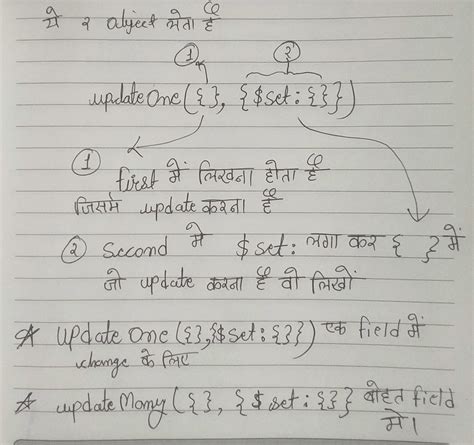 ये २ object लेता है
① ②
updateOne({}, {$set: {}})
① first में लिखना होता है
जिसमे update करना है
② Second मे $set: लगा कर { } में
जो update करना है वो लिखों
☆ updateOne({},{$set:{}}) एक field में
change के लिए
☆ updateMany({}, {$set: {}} बोहत field
मे।